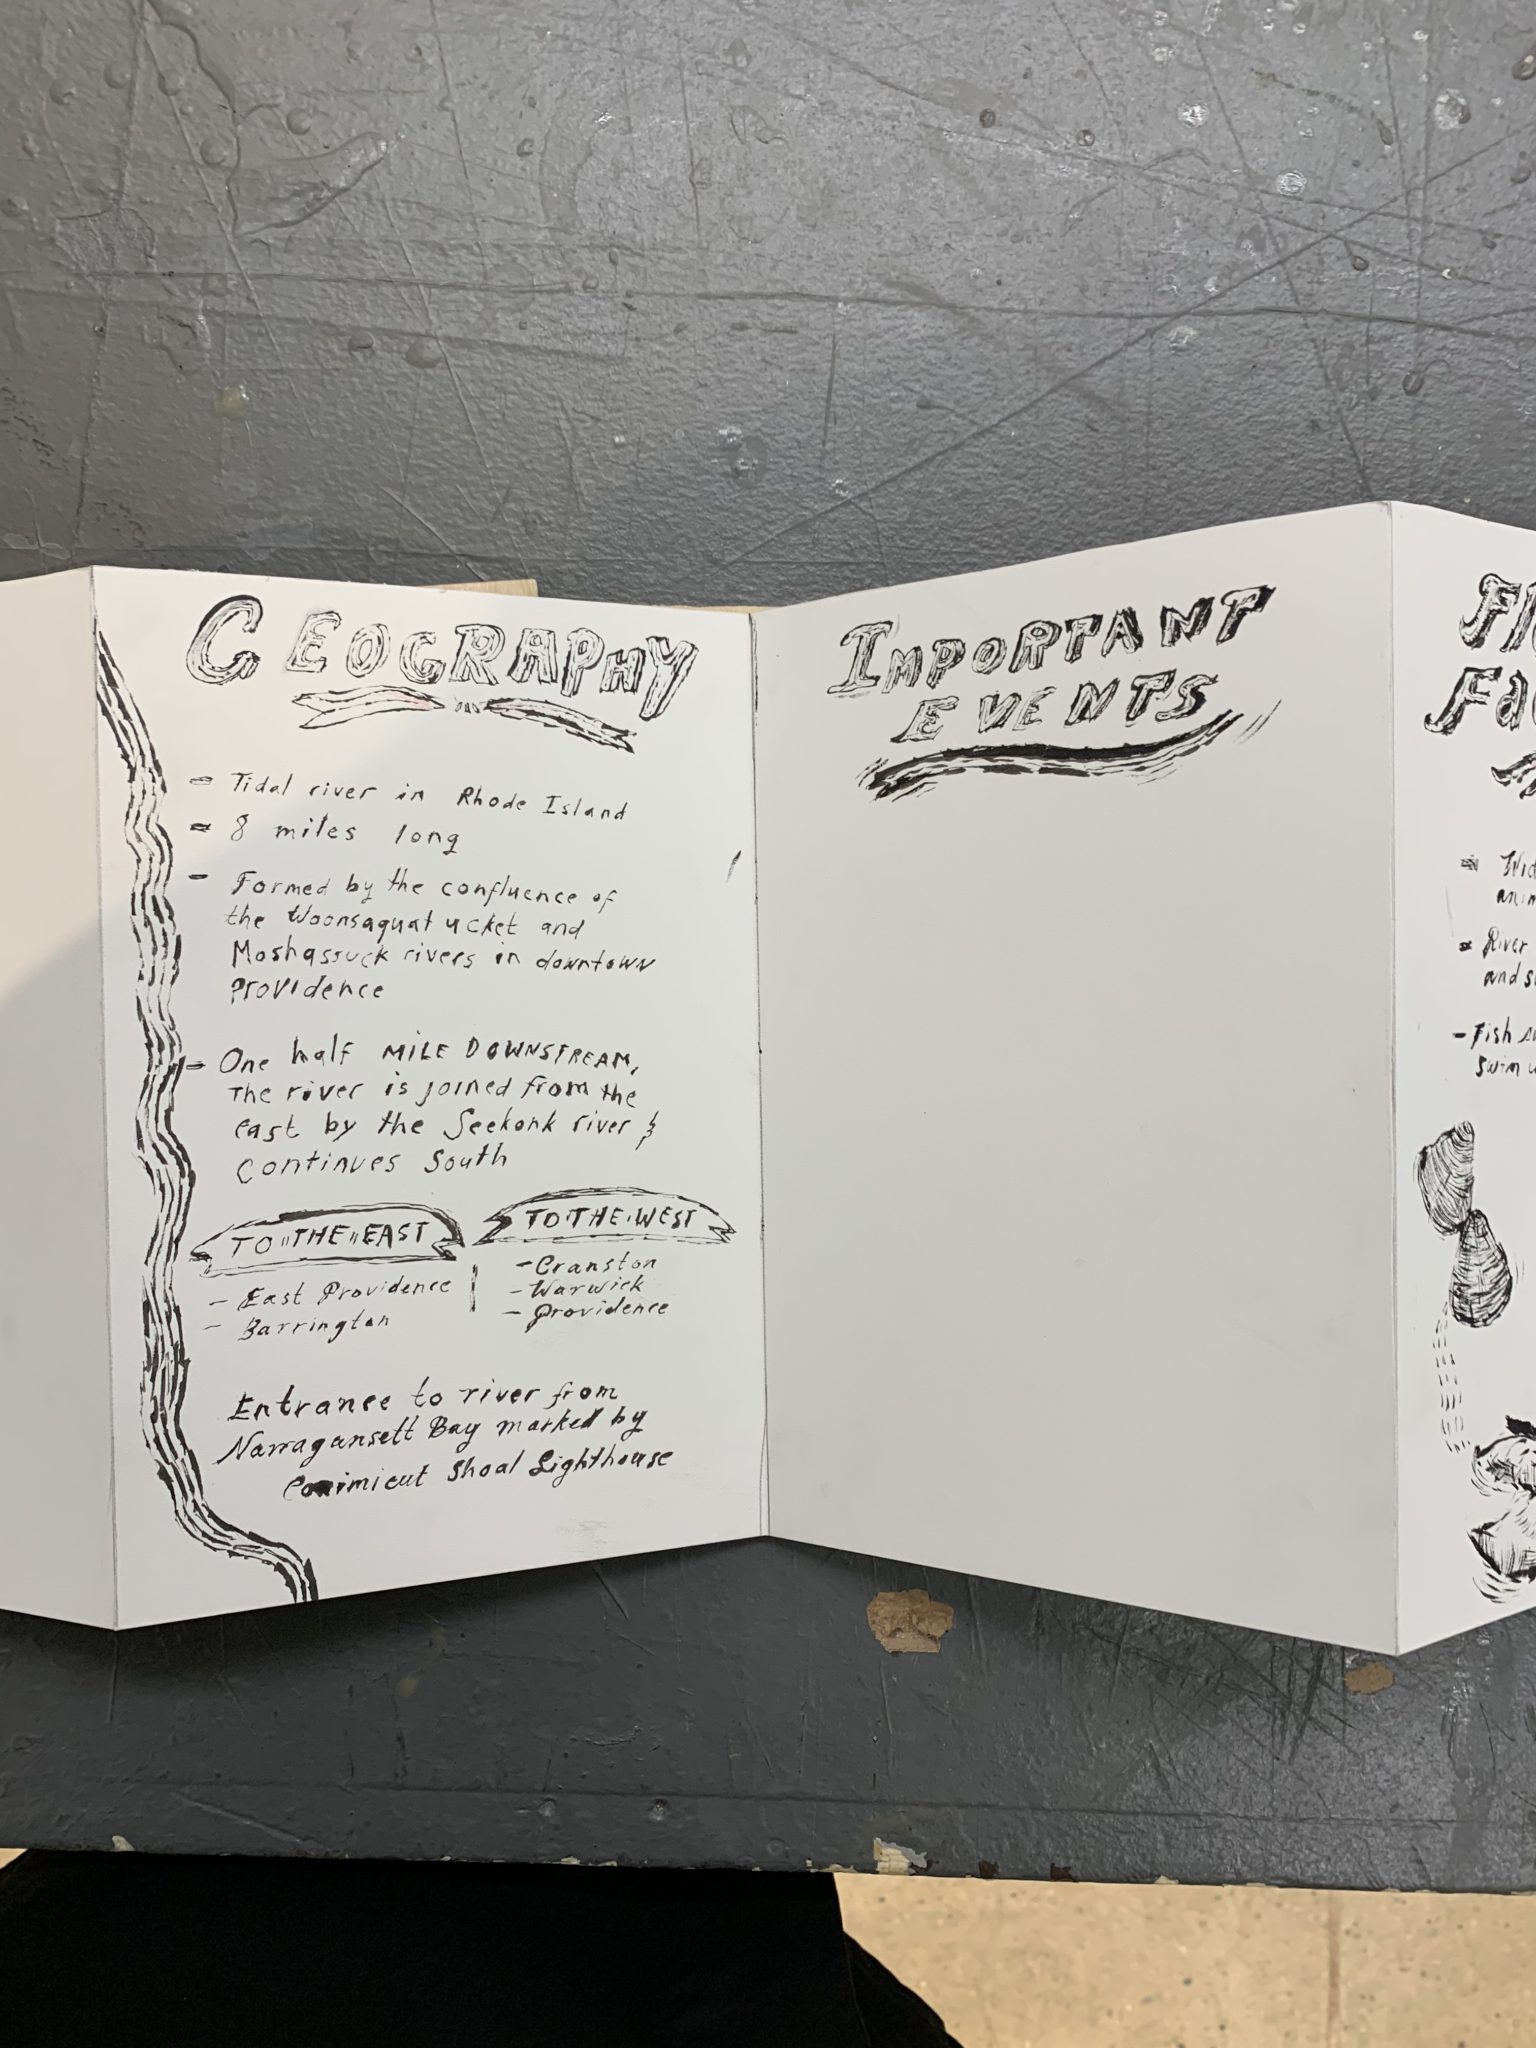 GEOGRAPHY
- Tidal river in Rhode Island
- 8 miles long
- Formed by the confluence of
the Woonsaquatucket and
Moshassuck rivers in downtown
Providence
- One half MILE DOWNSTREAM,
The river is joined from the
east by the Seekonk river &
continues South
TO "THE" EAST
- East Providence
- Barrington
TO·THE·WEST
- Cranston
- Warwick
- Providence
Entrance to river from
Narragansett Bay marked by
Conimicut Shoal Lighthouse
IMPORTANT
EVENTS
- River
and
- Fish
swim